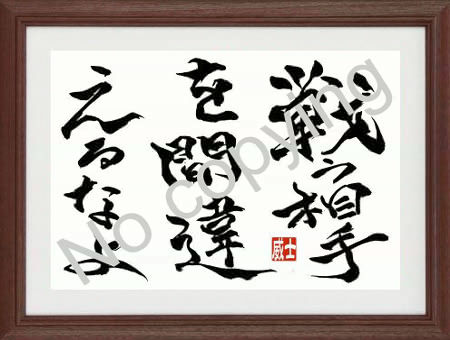 戦う相手
を間違
えるなよ
威士
No copying